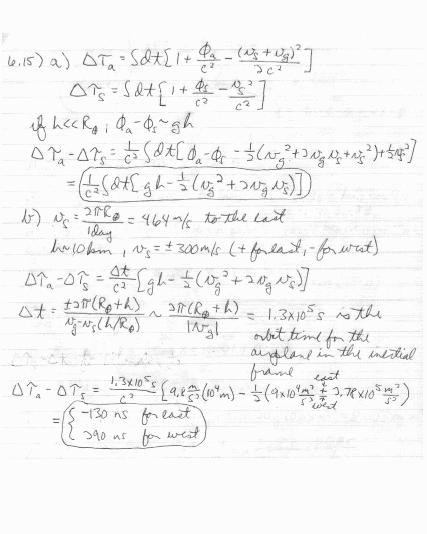 6.15) a) Δτₐ = ∫dt[1 + Φₐ/c² - (v_s + v_g)²/2c²]
Δτ_s = ∫dt[1 + Φ_s/c² - v_s²/c²]
if h<<R_⊕, Φₐ-Φ_s ~ gh
Δτₐ-Δτ_s = 1/c² ∫dt[Φₐ-Φ_s - ½(v_g²+2v_g v_s+v_s²)+½v_s²]
= 1/c² ∫dt[gh - ½(v_g² + 2v_g v_s)]
b) v_s = 2πR_⊕/1day = 464 m/s to the east
h~10km, v_s = ±300m/s (+ for east, - for west)
Δτₐ-Δτ_s = Δt/c² [gh - ½(v_g² + 2v_g v_s)]
Δt = ±2π(R_⊕+h)/v_g-v_s(h/R_⊕) ~ 2π(R_⊕+h)/|v_g| = 1.3×10⁵s is the
orbit time for the
airplane in the inertial
frame
Δτₐ-Δτ_s = 1.3×10⁵s/c² {9.8 m/s² (10⁴m) - ½(9×10⁴ m²/s² east ± west 2.78×10⁵ m²/s²)
= { -130 ns for east
290 ns for west